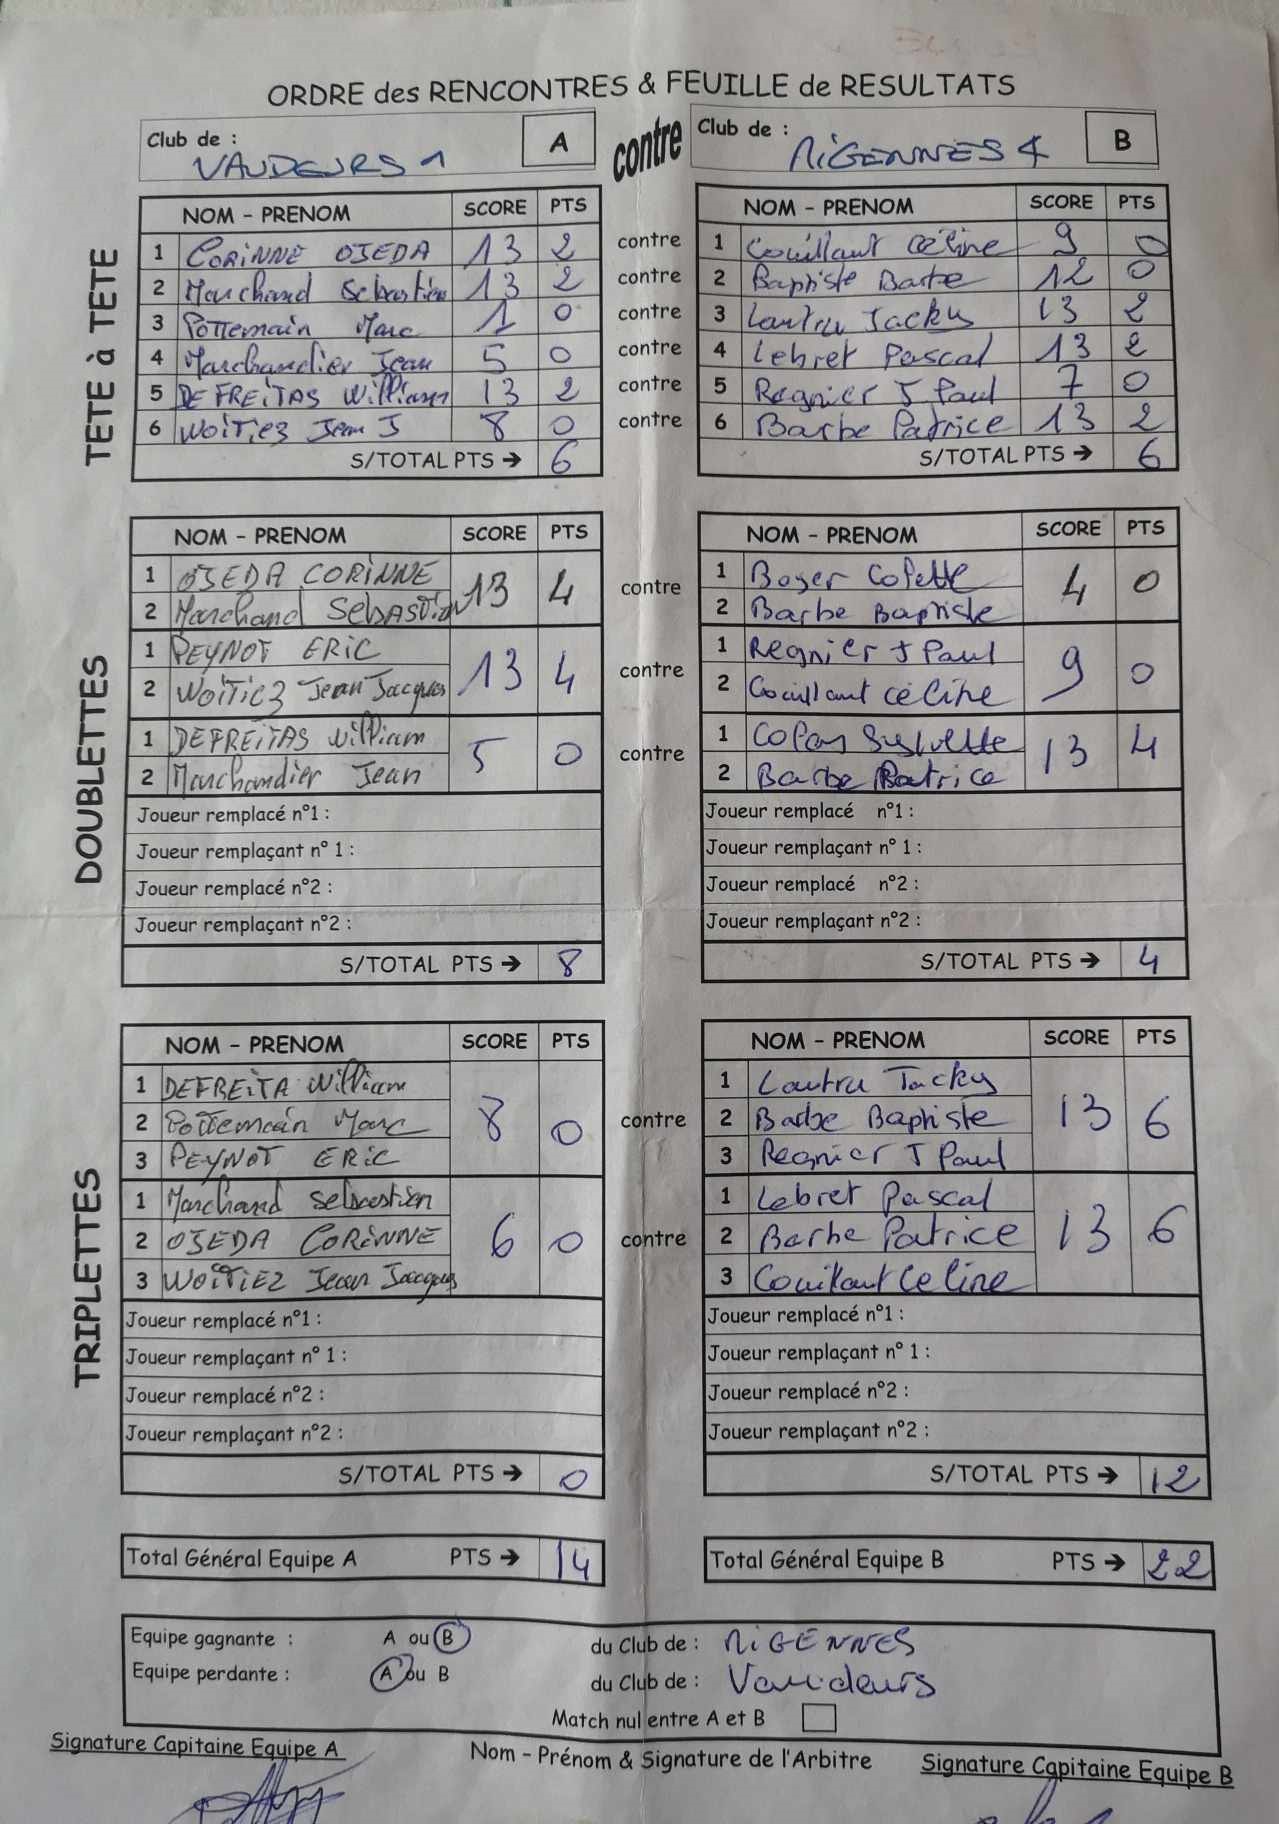 ORDRE des RENCONTRES & FEUILLE de RESULTATS
Club de : VAUDEURS 1 A contre Club de : MIGENNES 4 B
TETE à TETE
NOM - PRENOM SCORE PTS NOM - PRENOM SCORE PTS
1 CORINNE OJEDA 13 2 contre 1 Couillaut Céline 9 0
2 Marchand Sebastien 13 2 contre 2 Baptiste Barbe 12 0
3 Pottemain Marc 1 0 contre 3 Lautru Jacky 13 2
4 Marchandier Jean 5 0 contre 4 Lebret Pascal 13 2
5 DEFREITAS William 13 2 contre 5 Regnier J Paul 7 0
6 WOITIEZ Jean J 8 0 contre 6 Barbe Patrice 13 2
S/TOTAL PTS → 6 S/TOTAL PTS → 6
DOUBLETTES
NOM - PRENOM SCORE PTS NOM - PRENOM SCORE PTS
1 OJEDA CORINNE 13 4 contre 1 Boyer Colette 4 0
2 Marchand SEBASTIEN 2 Barbe Baptiste
1 PEYNOT ERIC 13 4 contre 1 Regnier J Paul 9 0
2 WOITIEZ Jean Jacques 2 Couillaut Céline
1 DEFREITAS William 5 0 contre 1 Colas Sylvette 13 4
2 Marchandier Jean 2 Barbe Patrice
Joueur remplacé n°1 : Joueur remplacé n°1 :
Joueur remplaçant n° 1 : Joueur remplaçant n° 1 :
Joueur remplacé n°2 : Joueur remplacé n°2 :
Joueur remplaçant n°2 : Joueur remplaçant n°2 :
S/TOTAL PTS → 8 S/TOTAL PTS → 4
TRIPLETTES
NOM - PRENOM SCORE PTS NOM - PRENOM SCORE PTS
1 DEFREITA William 8 0 contre 1 Lautru Jacky 13 6
2 Pottemain Marc 2 Barbe Baptiste
3 PEYNOT ERIC 3 Regnier J Paul
1 Marchand Sebastien 6 0 contre 1 Lebret Pascal 13 6
2 OJEDA CORINNE 2 Barbe Patrice
3 WOITIEZ Jean Jacques 3 Couillaut Celine
Joueur remplacé n°1 : Joueur remplacé n°1 :
Joueur remplaçant n° 1 : Joueur remplaçant n° 1 :
Joueur remplacé n°2 : Joueur remplacé n°2 :
Joueur remplaçant n°2 : Joueur remplaçant n°2 :
S/TOTAL PTS → 0 S/TOTAL PTS → 12
Total Général Equipe A PTS → 14 Total Général Equipe B PTS → 22
Equipe gagnante : A ou B du Club de : MIGENNES
Equipe perdante : A ou B du Club de : Vaudeurs
Match nul entre A et B
Signature Capitaine Equipe A Nom - Prénom & Signature de l'Arbitre Signature Capitaine Equipe B